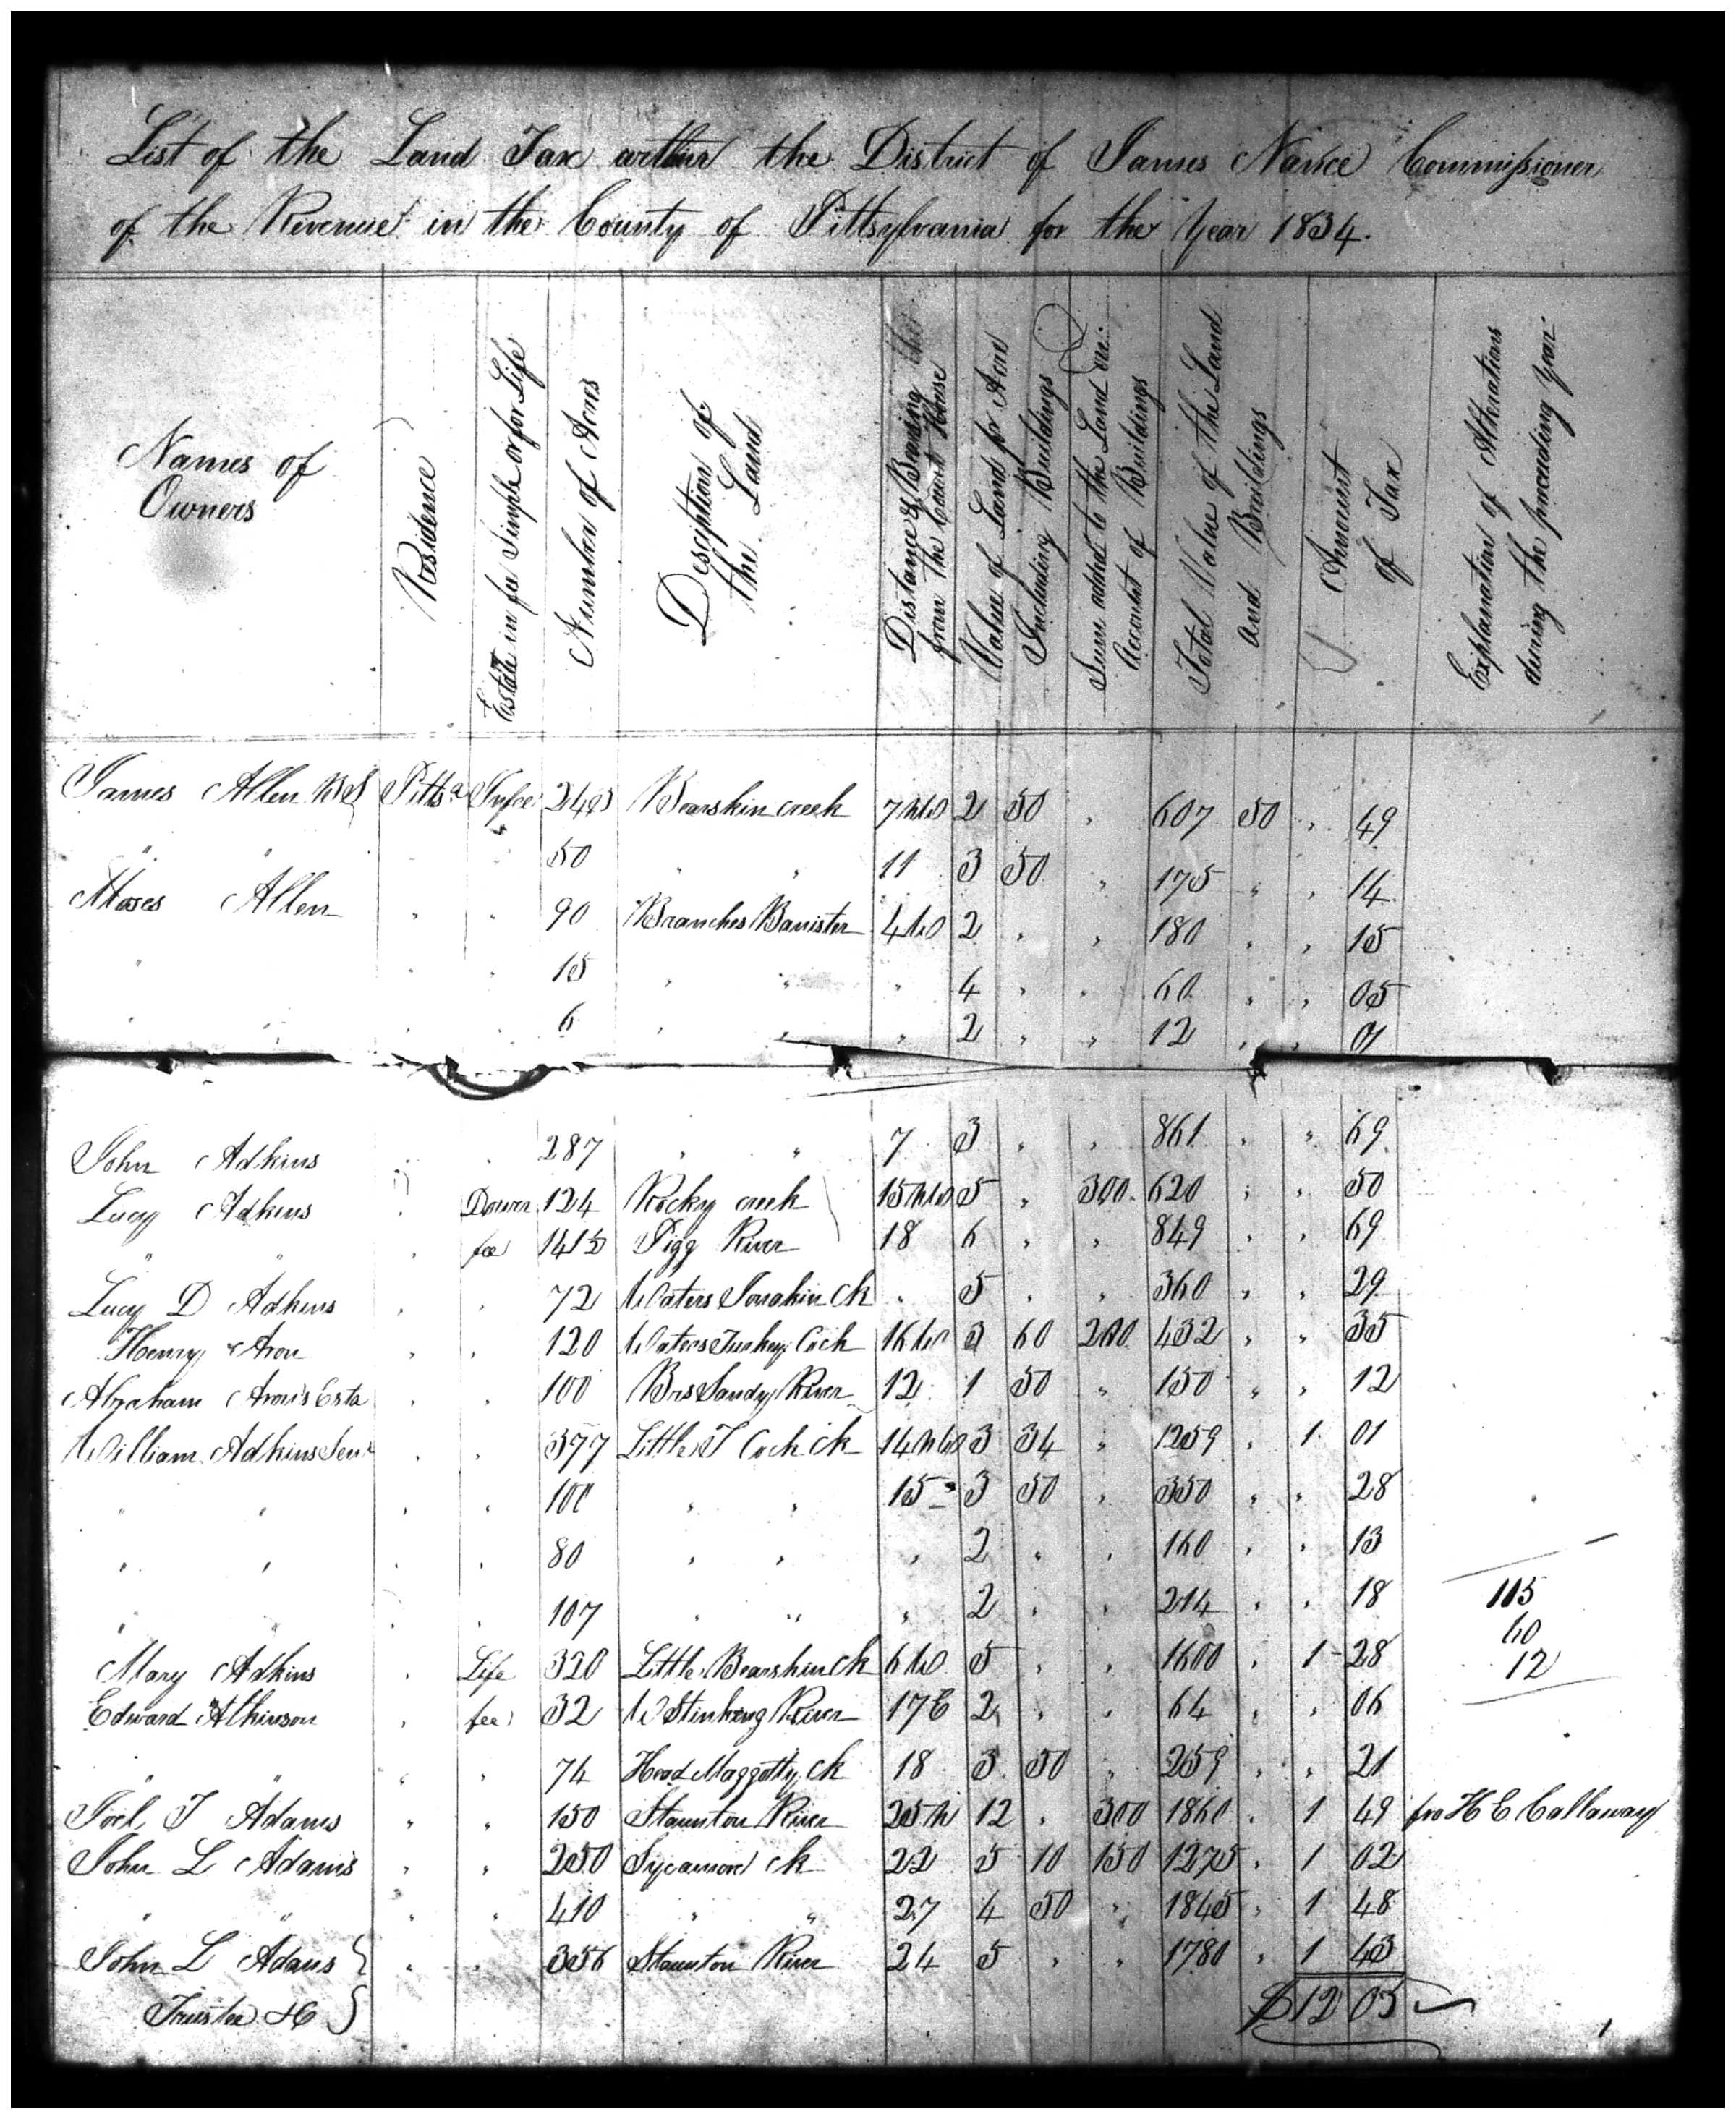 List of the Land Tax within the District of James Nance Commissioner
of the Revenue in the County of Pittsylvania for the Year 1834.
Names of Owners
Residence
Estate in fee Simple or for Life
Number of Acres
Description of the Land
Distance & Bearing from the Court House
Value of Land pr Acre Including Buildings
Sum added to the Land on Account of Buildings
Total Value of the Land and Buildings
Amount of Tax
Explanation of Alterations during the preceeding year
James Allen BS Pittsa 243 Bearskin creek 7 NW 2 50 " 607 50 " 49
" " 50 " " 11 3 50 " 175 " " 14
Moses Allen " " 90 Branches Banister 4 W 2 " " 180 " " 15
" " " 15 " " " 4 " " 60 " " 05
" " " " 6 " " " 2 " " 12 " " 01
John Adkins " " 287 " " 7 3 " " 861 " " 69
Lucy Adkins " Dower 124 Rocky creek 15 NW 5 " 300 620 " " 50
" " " fee 141½ Pigg River 18 6 " " 849 " " 69
Lucy D Adkins " " 72 Waters ck " 5 " " 360 " " 29
Henry Aron " " 120 Waters Turkey Cock 16 W 3 60 200 432 " " 35
Abraham Aron's Esta " " 100 Brs Sandy River 12 1 50 " 150 " " 12
William Adkins Senr " " 377 Little T Cock ck 14 NW 3 34 " 1259 " 1 01
" " " " 100 " " 15 " 3 50 " 350 " " 28
" " " " 80 " " " 2 " " 160 " " 13
" " " " 107 " " " 2 " " 214 " " 18 115
60
Mary Adkins " Life 320 Little Bearskin ck 6 W 5 " " 1600 " 1 28 12
Edward Atkinson " fee 32 W Stinking River 17 E 2 " " 64 " " 06
" " " " 74 Head Maggotty ck 18 3 50 " 259 " " 21
Joel T Adams " " 150 Staunton River 25 N 12 " 300 1860 " 1 49 fro H C Callaway
John L Adams " " 250 Sycamore ck 22 5 10 150 1275 " 1 02
" " " " 410 " " 27 4 50 " 1845 " 1 48
John L Adams } " " 356 Staunton River 24 5 " " 1780 " 1 43
Trustee &C } $12 03
1